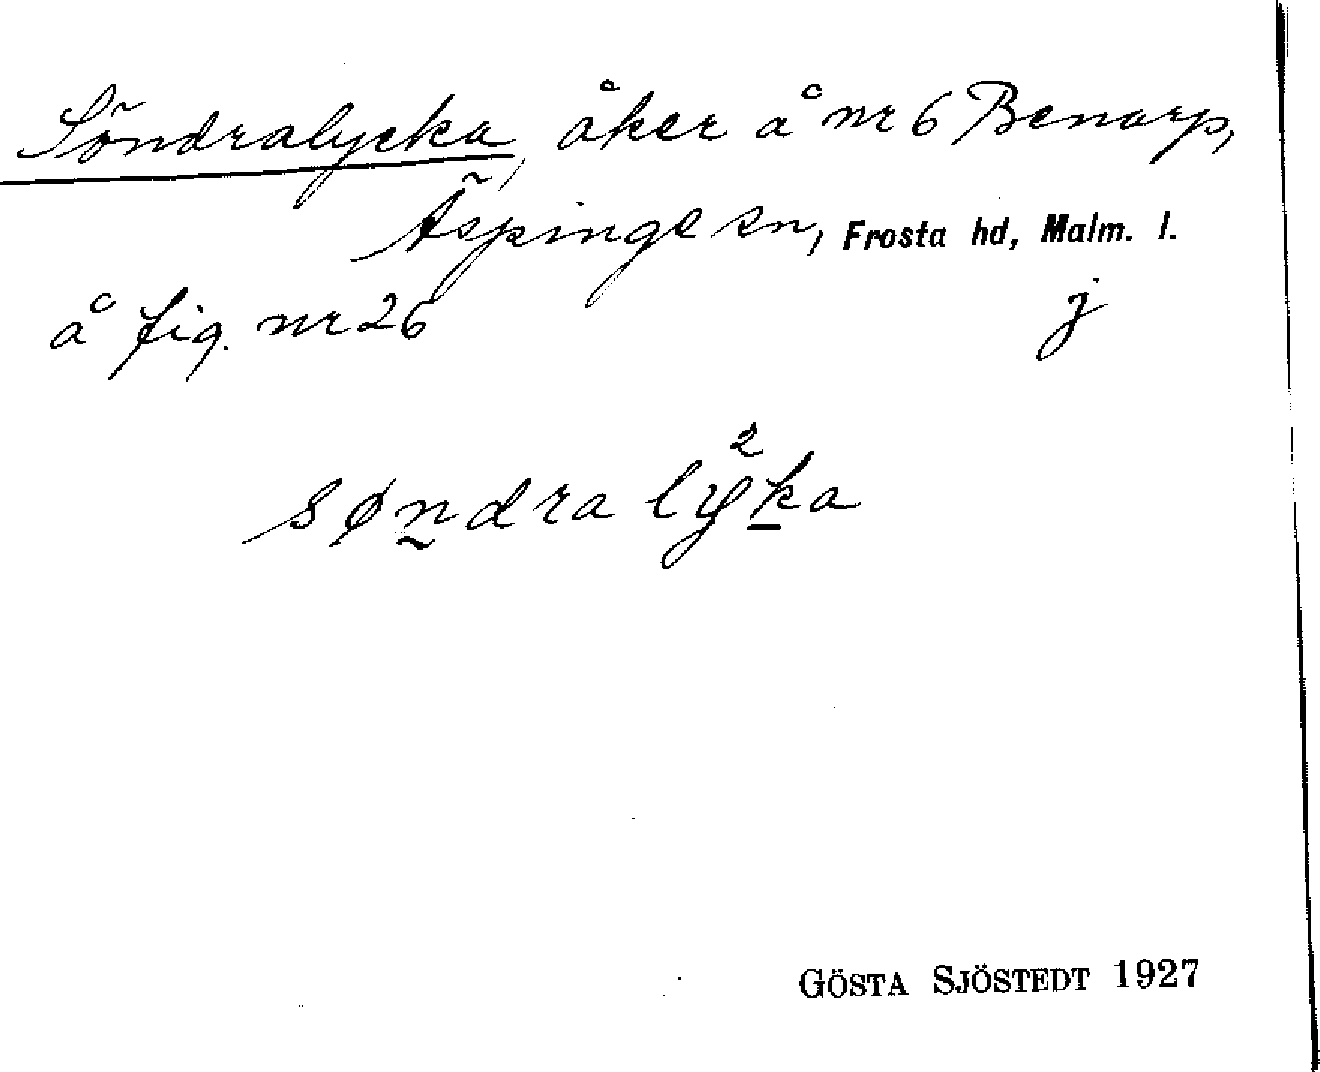 Söndralycka, åker å nr 6 Benarp,
Äspinge sn, Frosta hd, Malm. l.
å fig. nr 26 j
søn̰dra ly²k̲a
GÖSTA SJÖSTEDT 1927